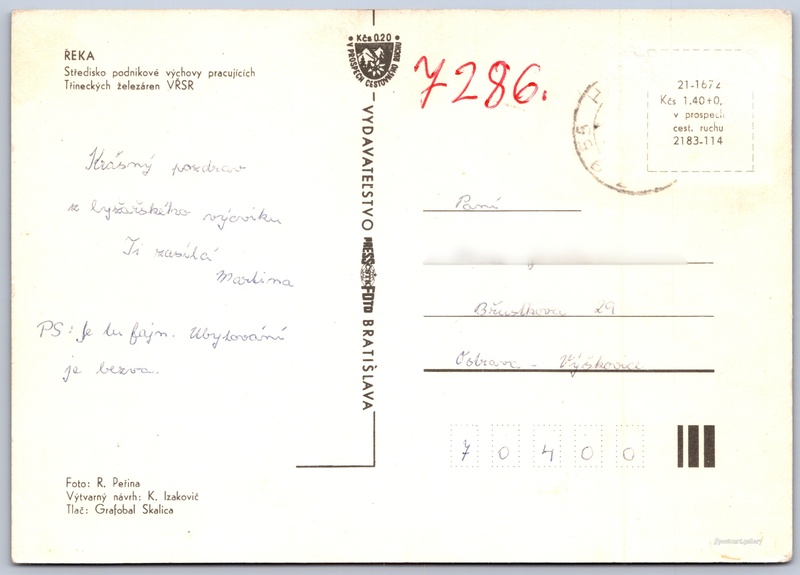 ŘEKA
Středisko podnikové výchovy pracujících
Třineckých železáren VŘSR
Krásný pozdrav
z lyžařského výcviku
Ti zasílá
Martina
PS: Je tu fajn. Ubytování
je bezva.
Foto: R. Peřina
Výtvarný návrh: K. Izakovič
Tlač: Grafobal Skalica
Kčs 0.20
V PROSPECH CESTOVNÉHO RUCHU
VYDAVATEĽSTVO PRESSFOTO BRATISLAVA
7286.
21-1672
Kčs 1,40+0,
v prospech
cest. ruchu
2183-114
Paní
29
Ostrava - Výškovice
70400